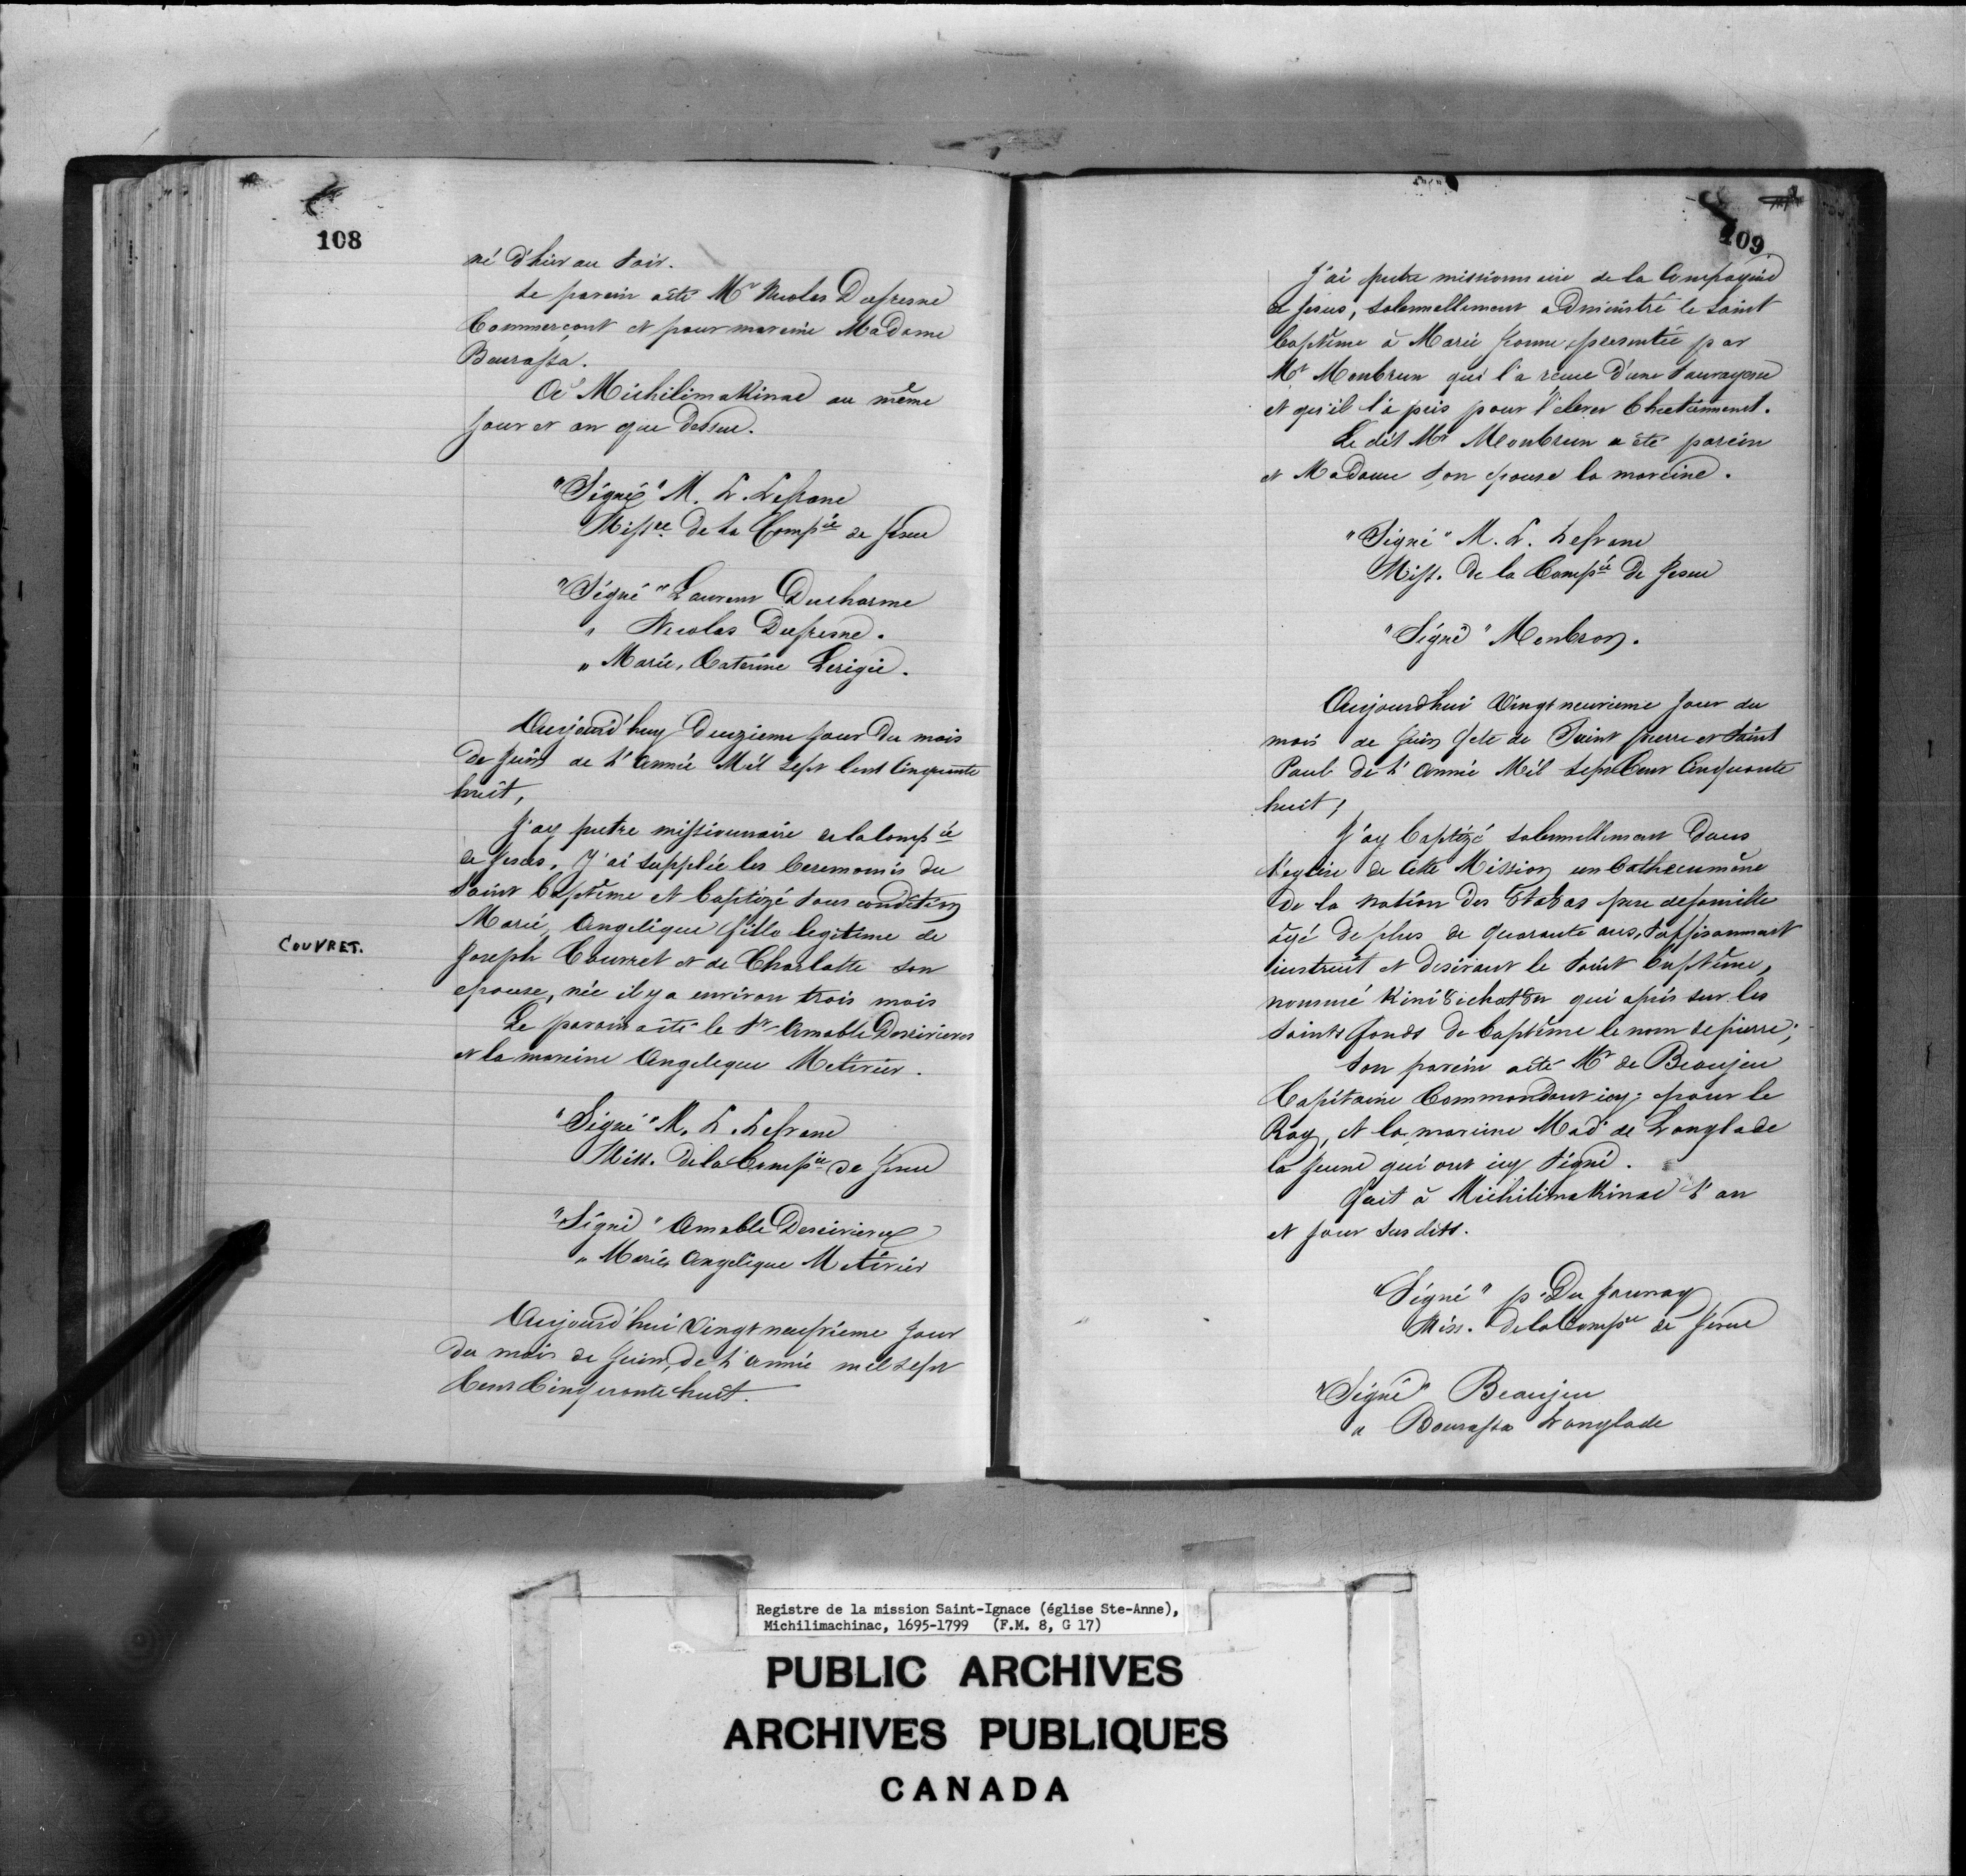 108
né d'hier au soir.
Le parein a été Mr Nicolas Dufresne
Commerçant et pour mareine Madame
Bourassa.
A Michilimakinac au même
jour et an que dessus.
"Signé" M. L. Lefranc
Missre de la Compie de Jesus
"Signé" Laurent Ducharme
" Nicolas Dufresne.
" Marie, Caterine Lerigée.
Aujourd'huy deuzieme jour du mois
de Juin de l'année Mil sept cent cinquante
huit,
J'ay pretre missionnaire de la Compie
de Jesus, J'ai supplée les ceremonis du
saint baptême et baptizé sous condition
COUVRET.
Marie, Angelique fille legitime de
Joseph Couvret et de Charlotte son
epouse, née il y a environ trois mois
Le parain a été le Sr Amable Desrivieres
et la mareine Angelique Metivier.
"Signé" M. L. Lefranc
Miss. de la Compie de Jesus
"Signé" Amable Desrivieres
" Marie, Angelique Metivier
Aujourd'hui vingt neufvieme jour
du mois de Juin, de l'année mil sept
Cent Cinquante huit.
109
J'ai pretre missionnaire de la Compagnie
de Jesus, solennellement administré le saint
baptême à Marie Jeanne, presentée par
Mr Monbrun qui l'a recue d'une sauvagesse
et qu'il l'a pris pour l'elever Chretiennement.
Le dit Mr Monbrun a été parein
et Madame son epouse la mareine.
"Signé" M. L. Lefranc
Miss. de la Compie de Jesus
"Signé" Monbron.
Aujourdhui Vingt neuvieme jour du
mois de Juin fete de Saint pierre et Saint
Paul de l'année Mil sept Cent Cinquante
huit;
J'ay baptizé solennellement dans
l'eglise de cette Mission un Cathecumêne
de la nation des 8ta8as pere de famille
âgé de plus de quarante ans, suffisamment
instruit et desirant le saint baptême,
nommé Kini8ichat8n qui a pris sur les
saints fonds de baptême le nom de pierre;
son parein a été Mr de Beaujeu
Capitaine Commandant icy: pour le
Roy, et la mareine Made de Langlade
la jeune qui ont icy signé.
Fait à Michilimakinac l'an
et jour susdits.
"Signé" p. Du Jaunay
Miss. de la Compie de Jesus
"Signé" Beaujeu
" Bourassa Langlade
Registre de la mission Saint-Ignace (église Ste-Anne),
Michilimachinac, 1695-1799 (F.M. 8, G 17)
PUBLIC ARCHIVES
ARCHIVES PUBLIQUES
CANADA